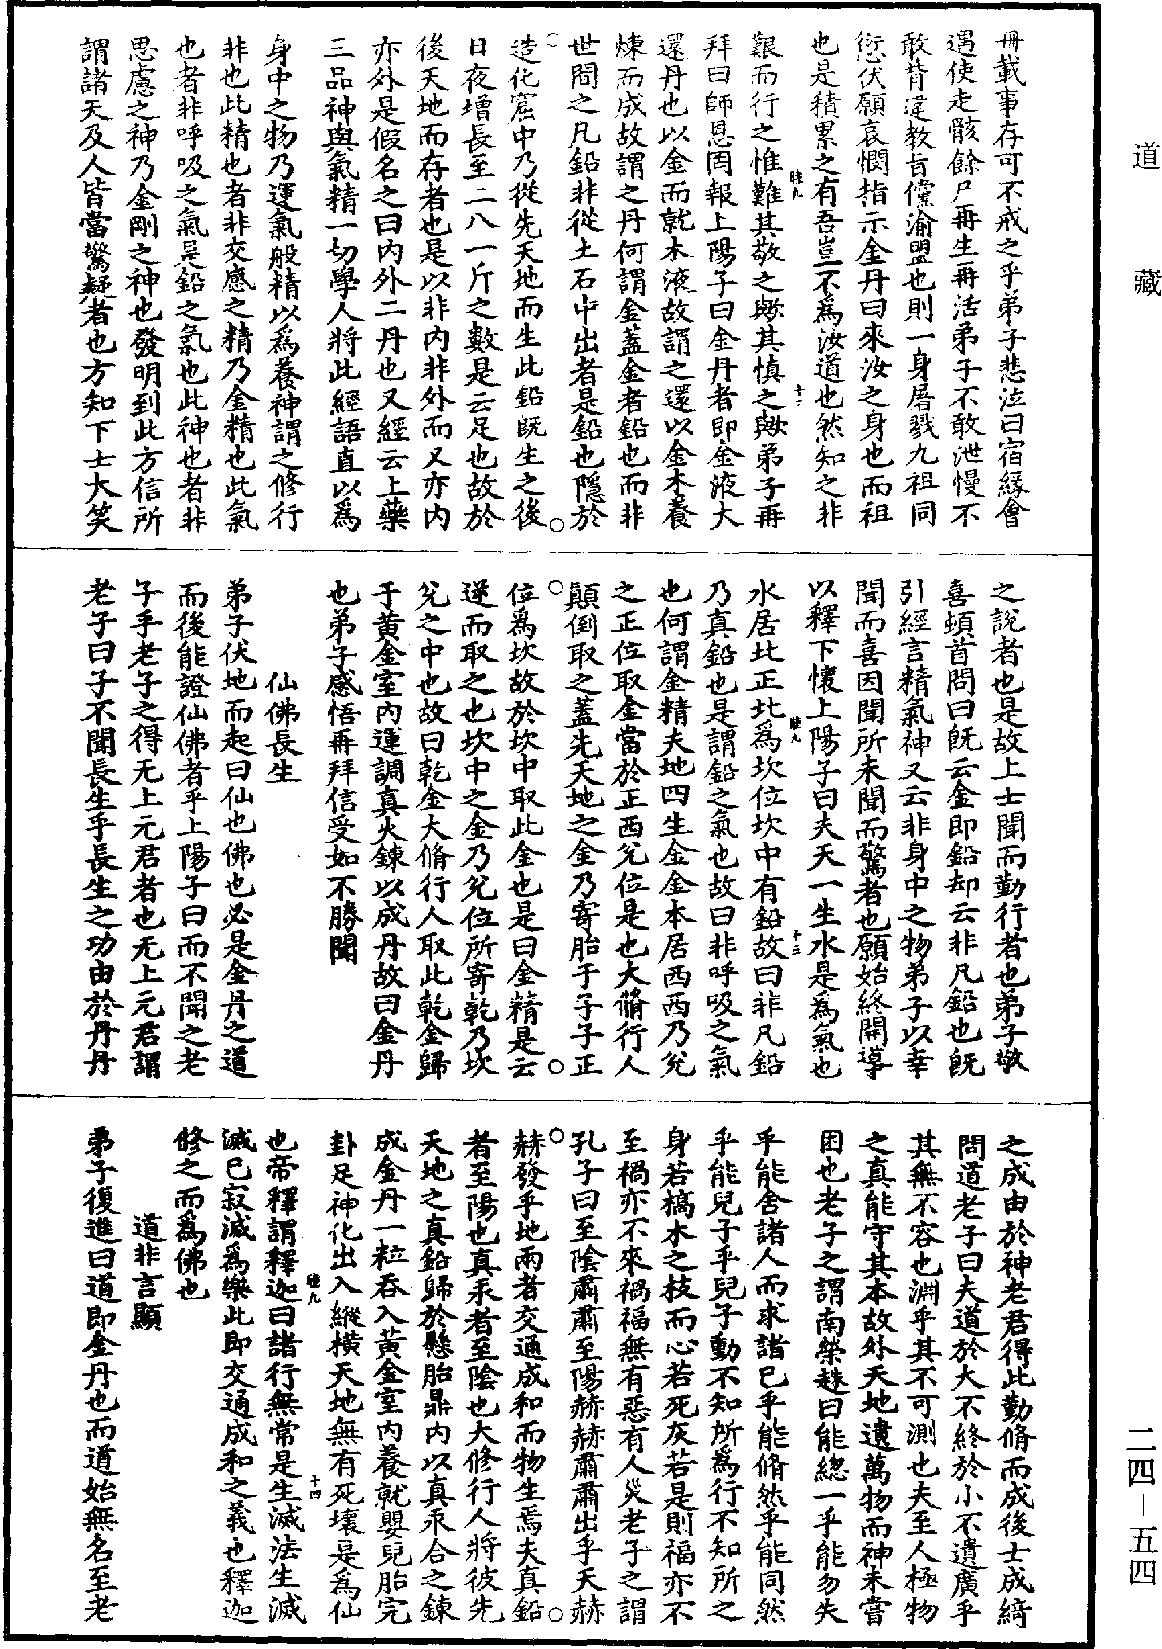 道藏
冊載事存可不戒之乎弟子悲泣曰宿緣會
遇使走骸餘尸再生再活弟子不敢泄慢不
敢背違教旨儻渝盟也則一身屠戮九祖同
愆伏願哀憫指示金丹曰來汝之身也而祖
也是積累之有吾豈不爲汝道也然知之非
艱而行之惟難其敬之歟其慎之歟弟子再
拜曰師恩罔報上陽子曰金丹者即金液大
還丹也以金而就木液故謂之還以金木養
煉而成故謂之丹何謂金蓋金者鉛也而非
世間之凡鉛非從土石中出者是鉛也隱於
造化窟中乃從先天地而生此鉛既生之後
日夜增長至二八一斤之數是云足也故於
後天地而存者也是以非內非外而又亦內
亦外是假名之曰內外二丹也又經云上藥
三品神與氣精一切學人將此經語直以爲
身中之物乃運氣般精以爲養神謂之修行
非也此精也者非交感之精乃金精也此氣
也者非呼吸之氣是鉛之氣也此神也者非
思慮之神乃金剛之神也發明到此方信所
謂諸天及人皆當驚疑者也方知下士大笑
之說者也是故上士聞而勤行者也弟子敬
喜頓首問曰既云金即鉛却云非凡鉛也既
引經言精氣神又云非身中之物弟子以幸
聞而喜因聞所未聞而驚者也願始終開導
以釋下懷上陽子曰夫天一生水是為氣也
水居北正北爲坎位坎中有鉛故曰非凡鉛
乃真鉛也是謂鉛之氣也故曰非呼吸之氣
也何謂金精夫地四生金金本居西西乃兌
之正位取金當於正西兌位是也大脩行人
顛倒取之蓋先天地之金乃寄胎于子子正
位爲坎故於坎中取此金也是曰金精是云
逆而取之也坎中之金乃兌位所寄乾乃坎
兌之中也故曰乾金大脩行人取此乾金歸
于黃金室內運調真火鍊以成丹故曰金丹
也弟子感悟再拜信受如不勝聞
仙佛長生
弟子伏地而起曰仙也佛也必是金丹之道
而後能證仙佛者乎上陽子曰而不聞之老
子乎老子之得无上元君者也无上元君謂
老子曰子不聞長生乎長生之功由於丹丹
之成由於神老君得此勤脩而成後士成綺
問道老子曰夫道於大不終於小不遺廣乎
其無不容也淵乎其不可測也夫至人極物
之真能守其本故外天地遺萬物而神未嘗
困也老子之謂南榮趎曰能緫一乎能勿失
乎能舍諸人而求諸己乎能脩然乎能同然
乎能兒子乎兒子動不知所爲行不知所之
身若槁木之枝而心若死灰若是則福亦不
至禍亦不來禍福無有惡有人災老子之謂
孔子曰至陰肅肅至陽赫赫肅肅出乎天赫
赫發乎地兩者交通成和而物生焉夫真鉛
者至陽也真汞者至陰也大修行人將彼先
天地之真鉛歸於懸胎鼎內以真汞合之鍊
成金丹一粒吞入黃金室內養就嬰兒胎完
卦足神化出入縱橫天地無有死壞是爲仙
也帝釋謂釋迦曰諸行無常是生滅法生滅
滅已寂滅爲樂此即交通成和之義也釋迦
修之而爲佛也
道非言顯
弟子復進曰道即金丹也而道始無名至老
二四－五四